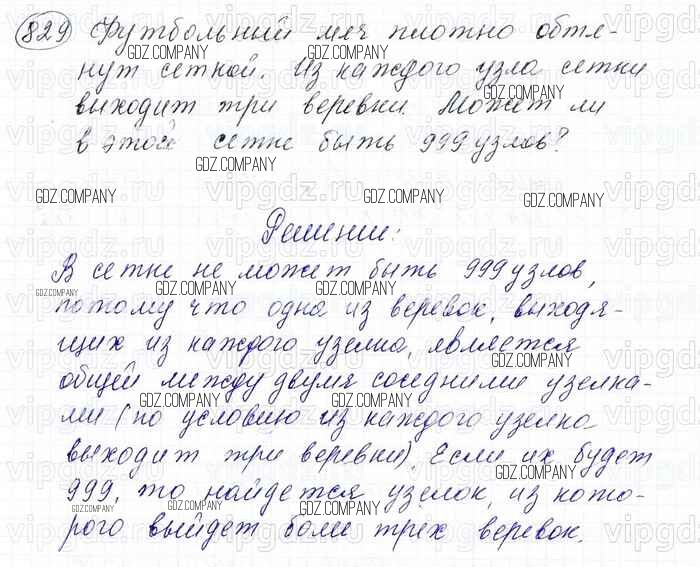 829 Футбольный мяч плотно обтя-
нут сеткой. Из каждого узла сетки
выходит три веревки. Может ли
в этой сетке быть 999 узлов?
Решение:
В сетке не может быть 999 узлов,
потому что одна из веревок, выходя-
щих из каждого узелка, является
общей между двумя соседними узелка-
ми (по условию из каждого узелка
выходит три веревки). Если их будет
999, то найдется узелок, из кото-
рого выйдет боли трёх веревок.